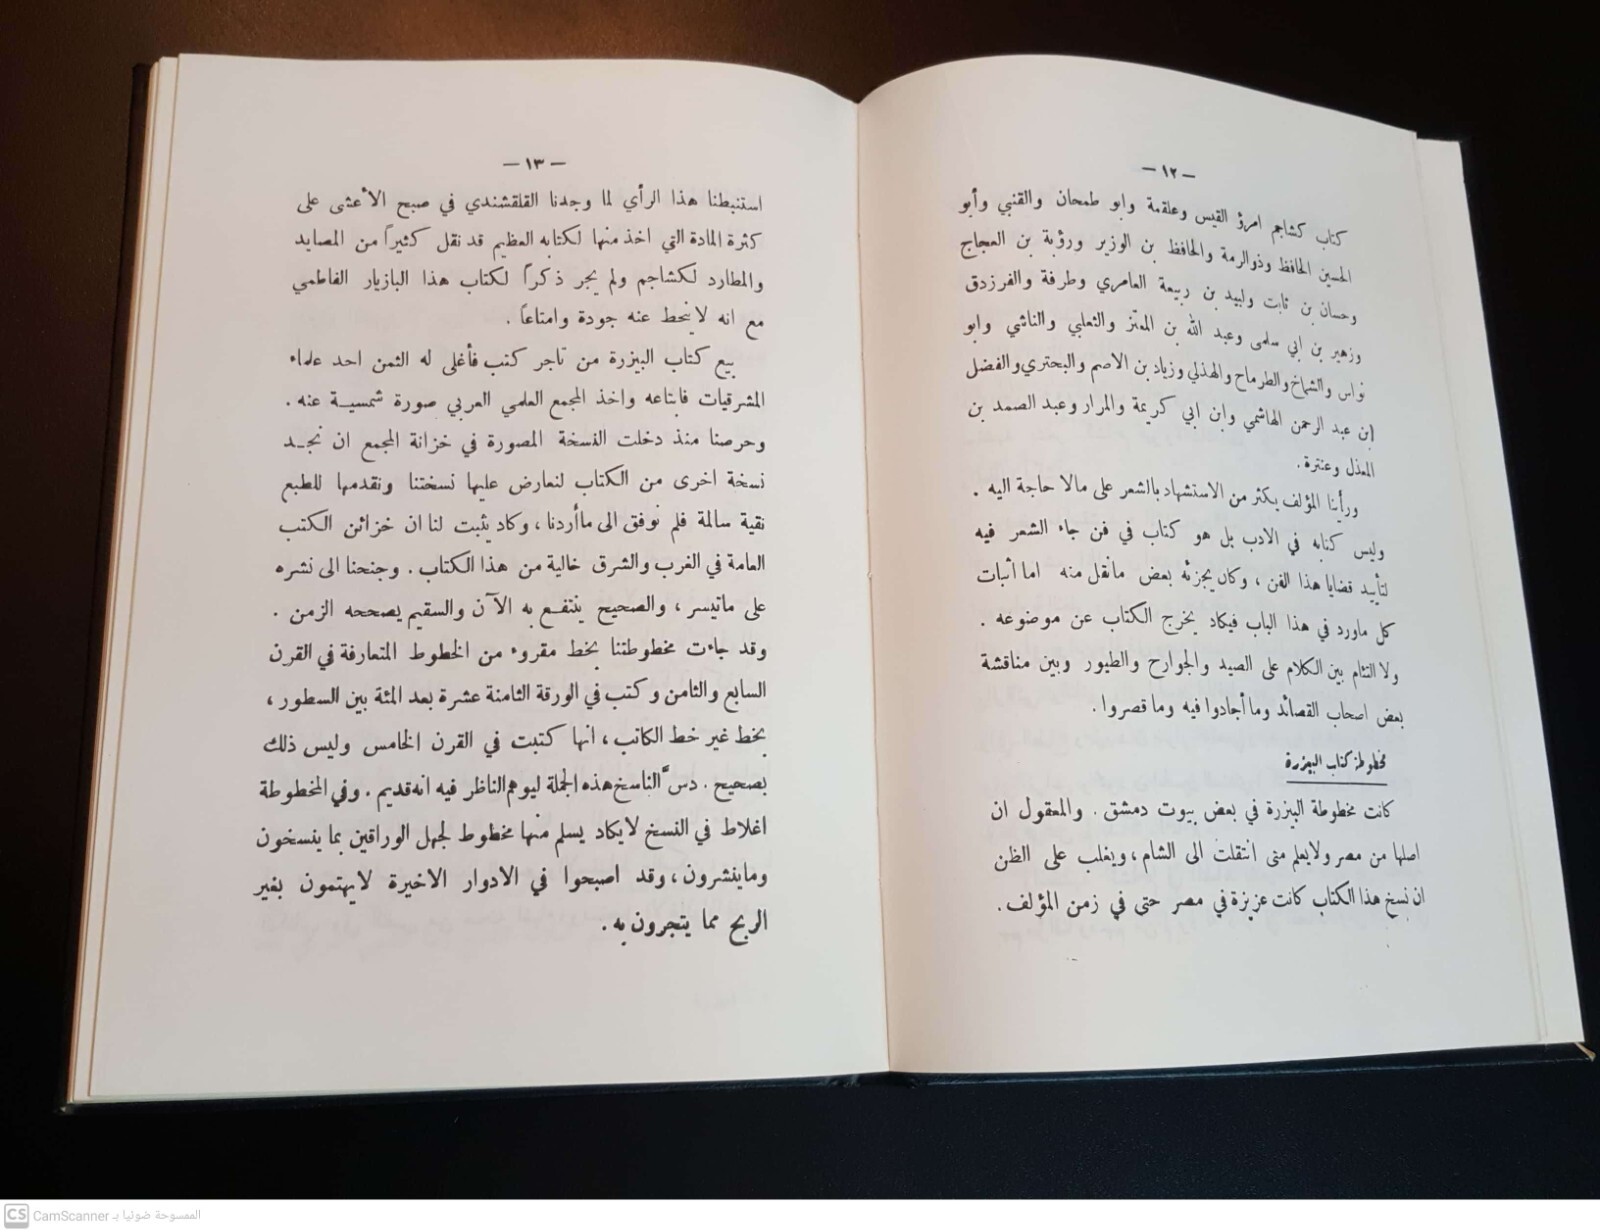 — ١٢ —
كتاب كشاجم امرؤ القيس وعلقمة وابو طمحان والقنبي وأبو
الحسين الحافظ وذوالرمة والحافظ بن الوزير ورؤبة بن العجاج
وحسان بن ثابت ولبيد بن ربيعة العامري وطرفة والفرزدق
وزهير بن ابي سلمى وعبد الله بن المعتز والثعلبي والناشي وابو
نواس والشماخ والطرماح والهذلي وزياد بن الاصم والبحتري والفضل
ابن عبد الرحمن الهاشمي وابن ابي كريمة والمرار وعبد الصمد بن
المعذل وعنترة .
ورأينا المؤلف يكثر من الاستشهاد بالشعر على مالا حاجة اليه .
وليس كتابه في الادب بل هو كتاب في فن جاء الشعر فيه
لتأييد قضايا هذا الفن ، وكان يجزئه بعض مانقل منه اما اثبات
كل ماورد في هذا الباب فيكاد يخرج الكتاب عن موضوعه .
ولا التئام بين الكلام على الصيد والجوارح والطيور وبين مناقشة
بعض اصحاب القصائد وما أجادوا فيه وما قصروا .
مخطوطة كتاب البيزرة
كانت مخطوطة البيزرة في بعض بيوت دمشق . والمعقول ان
اصلها من مصر ولا يعلم متى انتقلت الى الشام ، ويغلب على الظن
ان نسخ هذا الكتاب كانت عزيزة في مصر حتى في زمن المؤلف .
— ١٣ —
استنبطنا هذا الرأي لما وجدنا القلقشندي في صبح الأعشى على
كثرة المادة التي اخذ منها لكتابه العظيم قد نقل كثيراً من المصايد
والمطارد لكشاجم ولم يجر ذكراً لكتاب هذا البازيار الفاطمي
مع انه لا ينحط عنه جودة وامتاعاً .
بيع كتاب البيزرة من تاجر كتب فأغلى له الثمن احد علماء
المشرقيات فابتاعه واخذ المجمع العلمي العربي صورة شمسية عنه .
وحرصنا منذ دخلت النسخة المصورة في خزانة المجمع ان نجد
نسخة اخرى من الكتاب لنعارض عليها نسختنا ونقدمها للطبع
نقية سالمة فلم نوفق الى ماأردنا ، وكاد يثبت لنا ان خزائن الكتب
العامة في الغرب والشرق خالية من هذا الكتاب . وجنحنا الى نشره
على ماتيسر ، والصحيح ينتفع به الآن والسقيم يصححه الزمن .
وقد جاءت مخطوطتنا بخط مقروء من الخطوط المتعارفة في القرن
السابع والثامن وكتب في الورقة الثامنة عشرة بعد المئة بين السطور ،
بخط غير خط الكاتب ، انها كتبت في القرن الخامس وليس ذلك
بصحيح . دسَّ الناسخ هذه الجملة ليوهم الناظر فيه انه قديم . وفي المخطوطة
اغلاط في النسخ لايكاد يسلم منها مخطوط لجهل الوراقين بما ينسخون
وماينشرون ، وقد اصبحوا في الادوار الاخيرة لايهتمون بغير
الربح مما يتجرون به .
CS CamScanner الممسوحة ضوئيا بـ